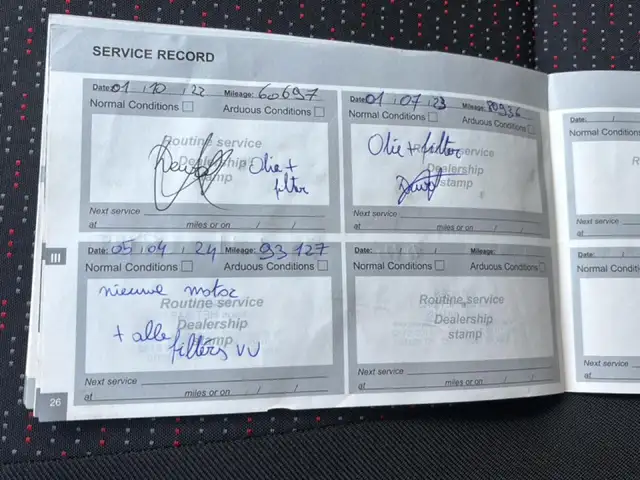 SERVICE RECORD
Date: 01 / 10 / 22 Mileage: 60697
Normal Conditions Arduous Conditions
Routine service
Dealership
stamp
Olie +
filter
Next service
at miles or on / /
Date: 01 / 07 / 23 Mileage: 80936
Normal Conditions
Arduous Conditions
Olie + filter
stamp
Next service
at miles or on / /
Date: 05 / 04 / 24 Mileage: 93127
Normal Conditions Arduous Conditions
nieuwe motor
Routine service
Dealership
stamp
+ alle
filters VV
Next service
at miles or on / /
Date: / / Mileage:
Normal Conditions Arduous Conditions
Routine service
Dealership
stamp
Next service
at miles or on / /
III
26
Date:
Normal Conditions
Next service
at
Date:
Normal Conditions
Next service
at